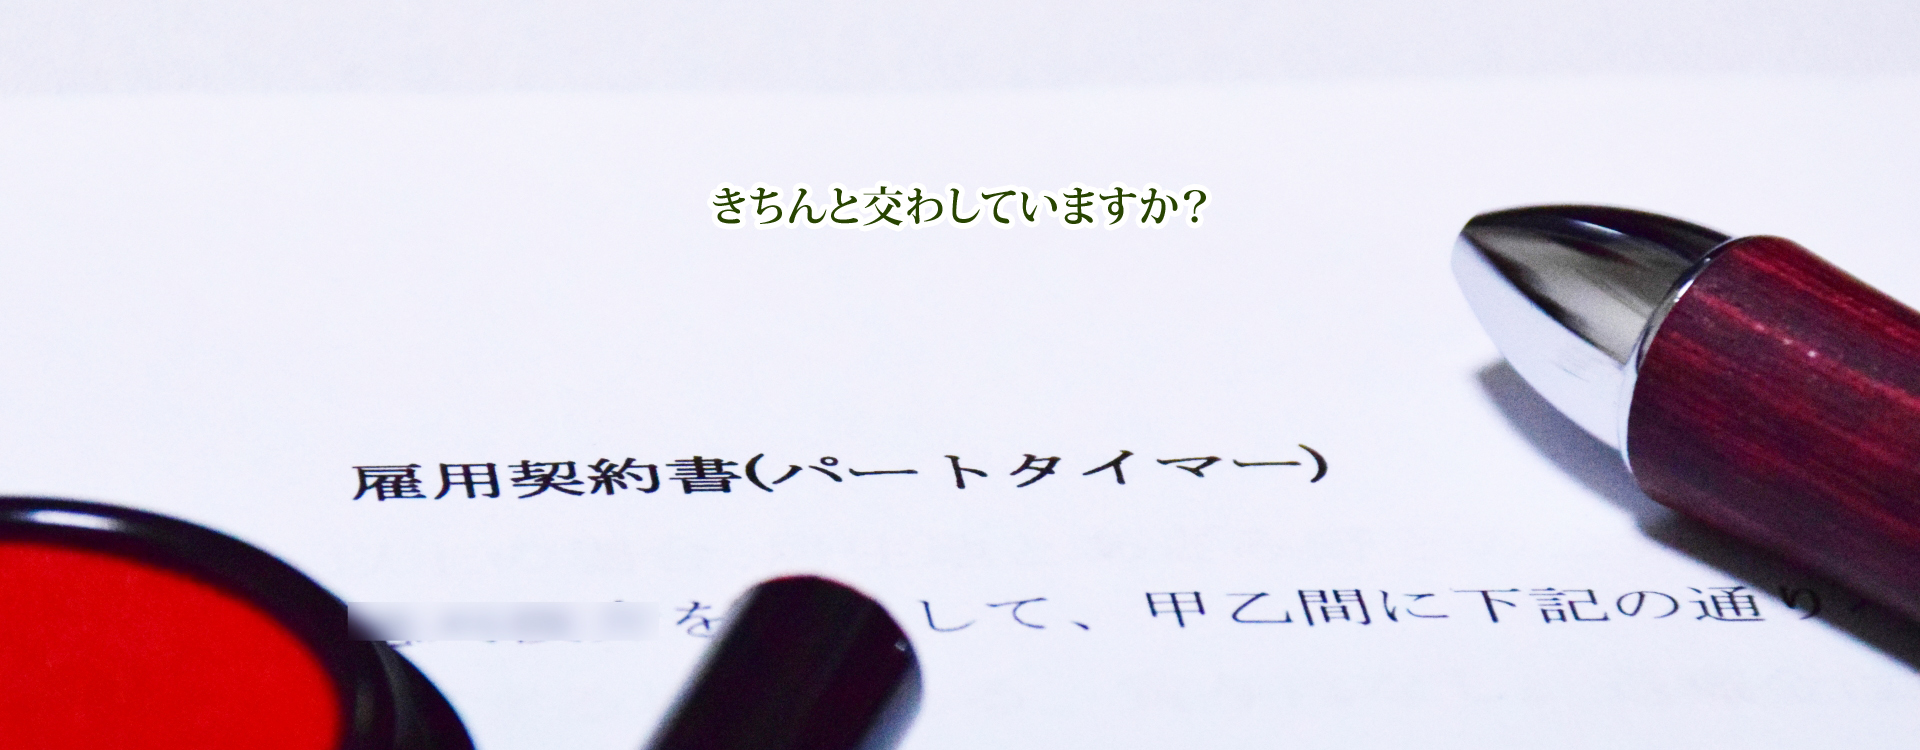 きちんと交わしていますか？
雇用契約書(パートタイマー)
を して、甲乙間に下記の通り